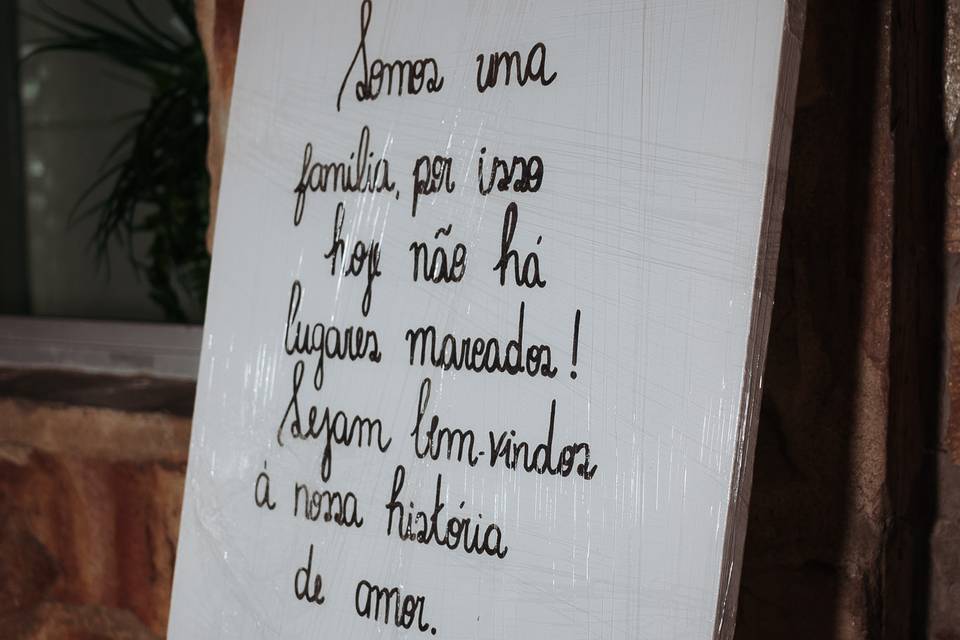 Somos uma
família, por isso
hoje não há
lugares marcados!
Sejam bem-vindos
á nossa história
de amor.